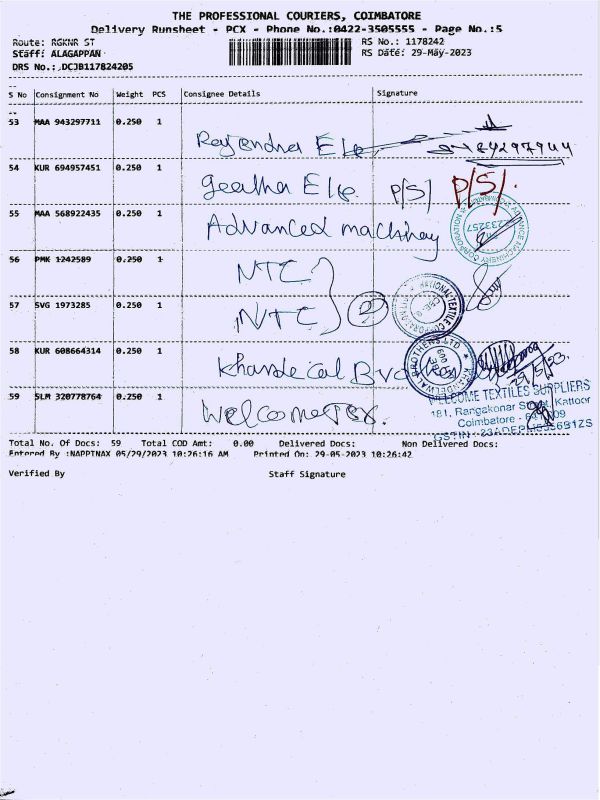 THE PROFESSIONAL COURIERS, COIMBATORE
Delivery Runsheet - PCX - Phone No.:0422-3505555 - Page No.:5
Route: RGKNR ST
RS No.: 1178242
Staff: ALAGAPPAN
RS Date: 29-May-2023
DRS No.: DCJB117824205
S No Consignment No Weight PCS Consignee Details Signature
53 MAA 943297711 0.250 1 Rajendra Ele
54 KUR 694957451 0.250 1 Geetha Ele. P/S/ P/S/.
55 MAA 568922435 0.250 1 Advanced machinery
ADVANCE MACHINERY CORPORATION
56 PMK 1242589 0.250 1 NTC
57 SVG 1973285 0.250 1 NTC 2
NATIONAL TEXTILE CORPORATION
58 KUR 608664314 0.250 1 Khandelwal
BROTHERS LTD
29/5/23.
59 SLM 320778764 0.250 1 Welcome Tex.
WELCOME TEXTILES SUPPLIERS
181, Rangakonar Street, Kattoor
Coimbatore
Total No. Of Docs: 59 Total COD Amt: 0.00 Delivered Docs: Non Delivered Docs:
Entered By :NAPPINAX 05/29/2023 10:26:16 AM Printed On: 29-05-2023 10:26:42
Verified By Staff Signature